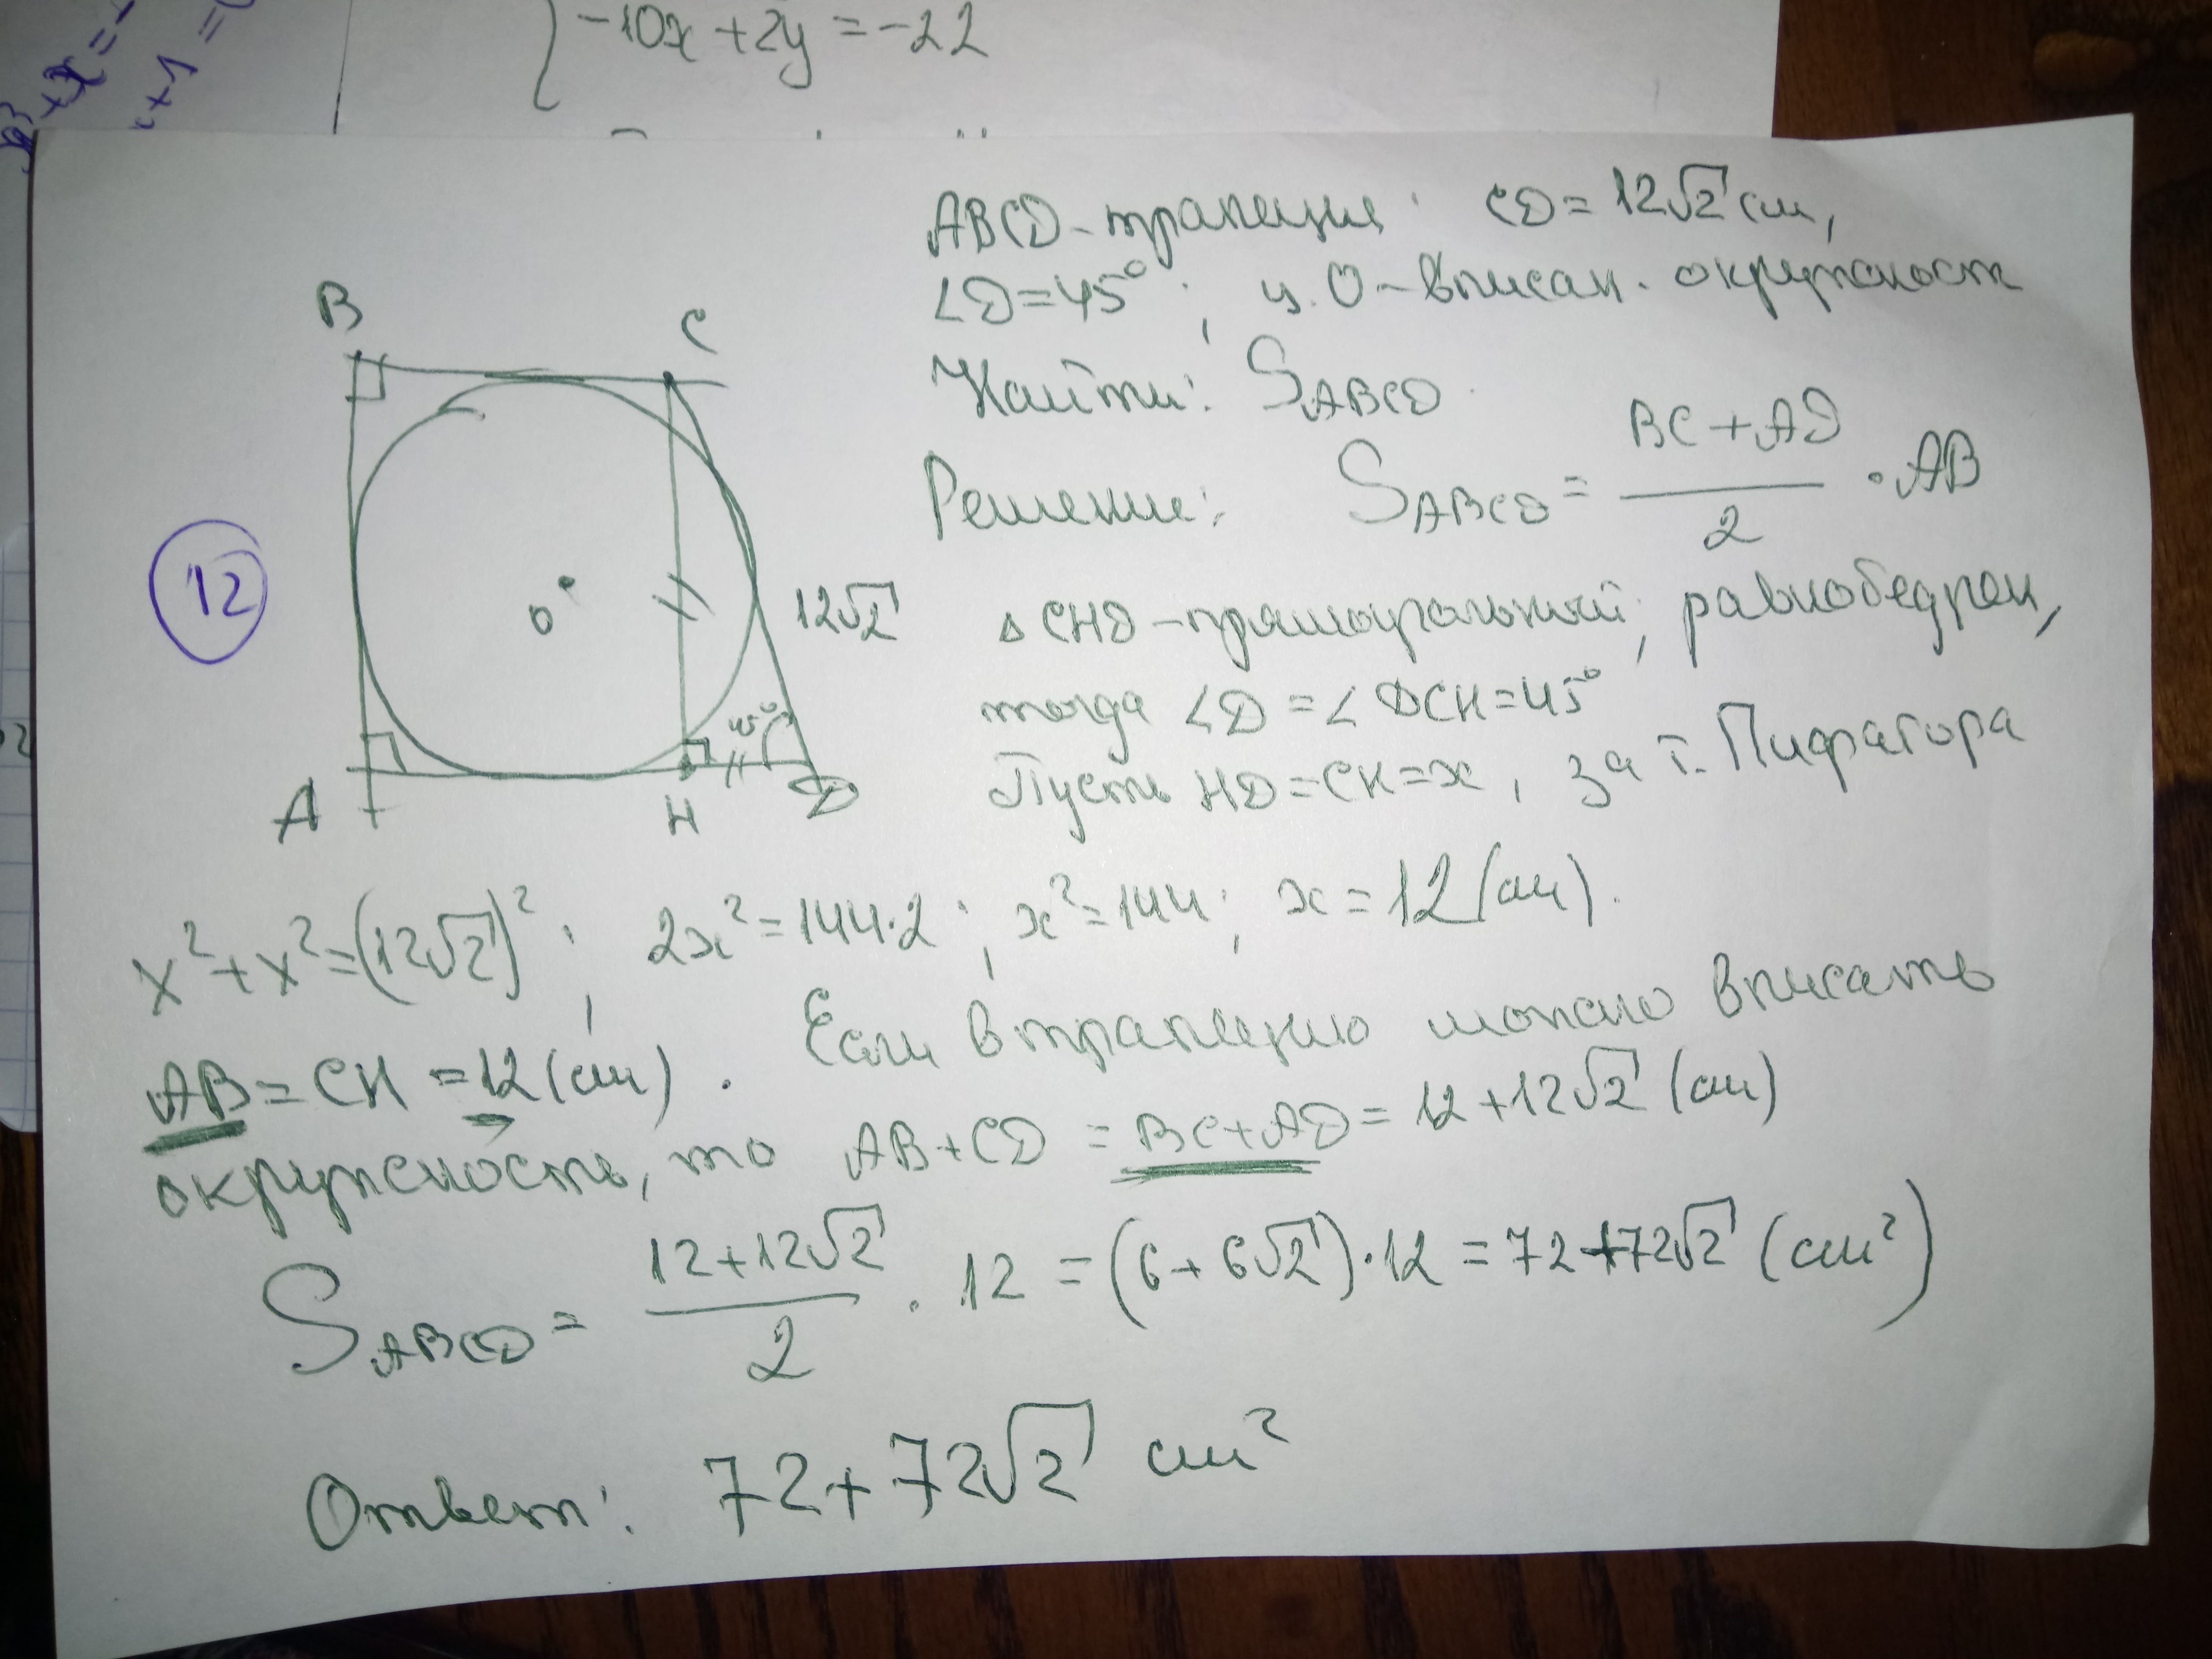 -10x+2y=-22
12
B
C
A
H
D
O
45°
12√2
ABCD-трапеция; CD=12√2 см,
∠D=45°; т. O-вписан. окружност
Найти: S ABCD
Решение: S ABCD = (BC+AD)/2 · AB
△ CHD-прямоугольный, равнобедрен,
тогда ∠D=∠DCH=45°
Пусть HD=CH=x, за т. Пифагора
x²+x²=(12√2)²; 2x²=144·2; x²=144; x=12(см).
AB=CH=12(см). Если в трапецию можно вписать
окружность, то AB+CD=BC+AD=12+12√2 (см)
S ABCD = (12+12√2)/2 · 12 = (6+6√2)·12 = 72+72√2 (см²)
Ответ: 72+72√2 см²